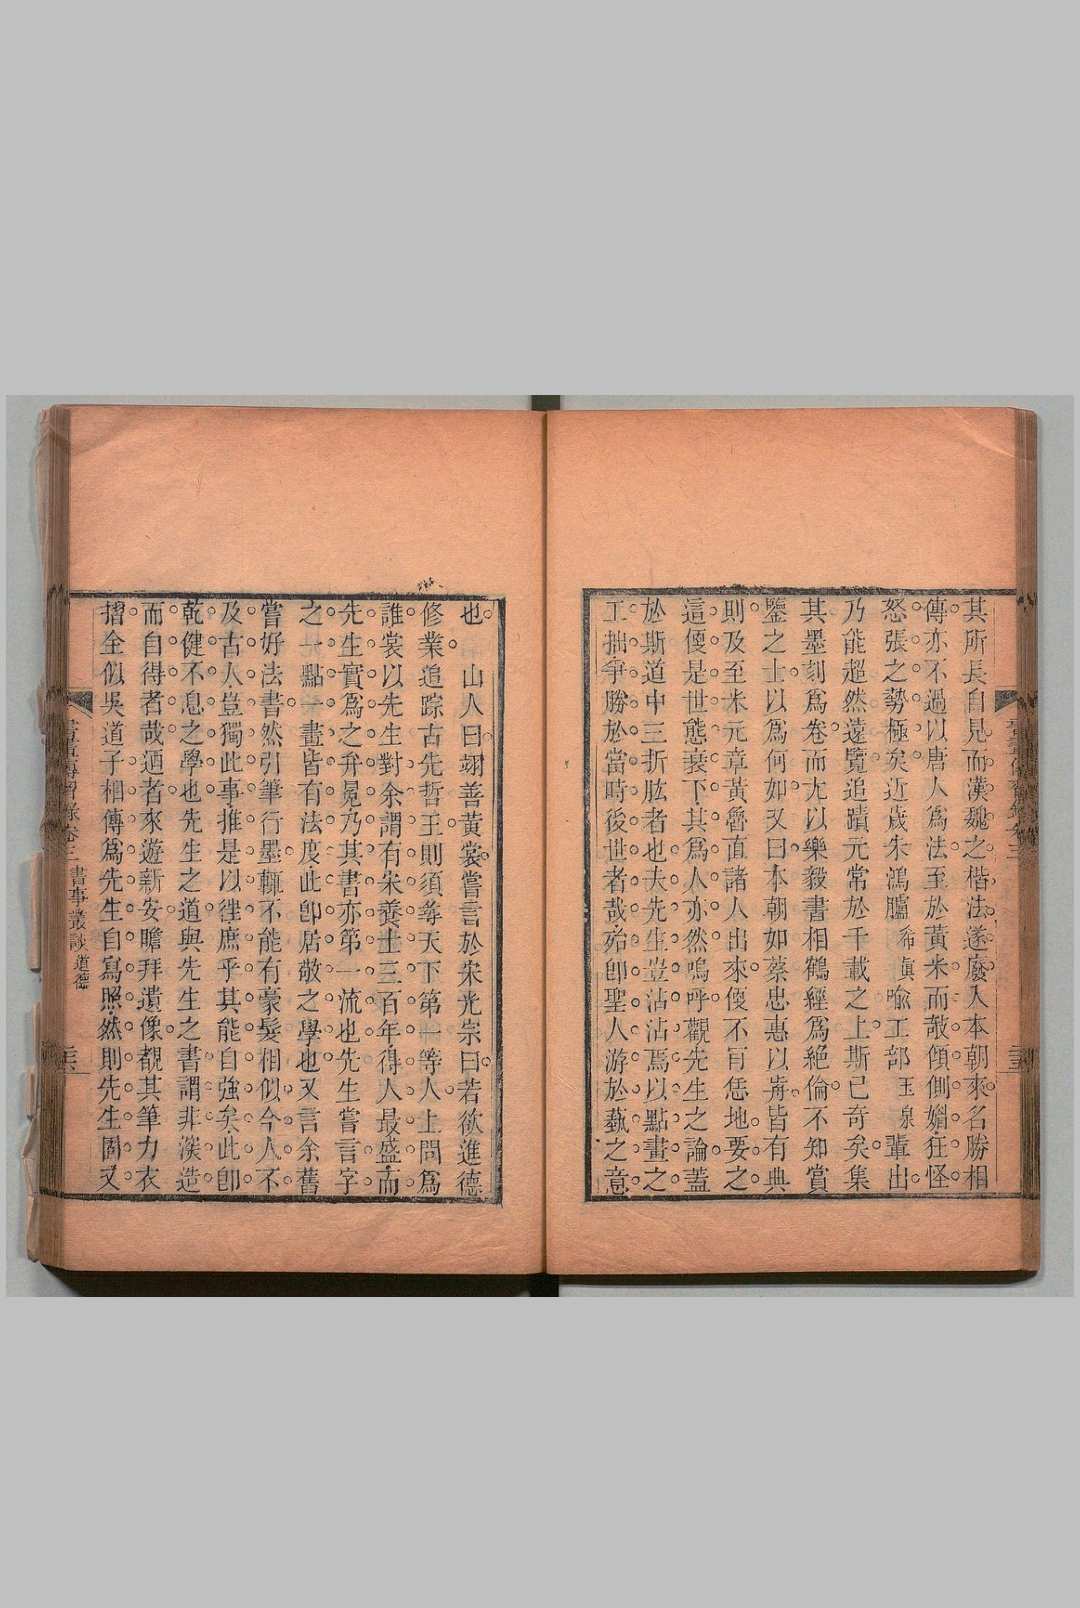 其所長自見而漢魏之楷法遂廢入本朝來名勝相
傳亦不過以唐人爲法至於黃米而攲傾側媚狂怪
怒張之勢極矣近歲朱鴻臚希眞喻工部玉泉輩出
乃能超然遠覽追蹟元常於千載之上斯已奇矣集
其墨刻爲卷而尤以樂毅書相鶴經爲絕倫不知賞
鑒之士以爲何如又曰本朝如蔡忠惠以前皆有典
則及至米元章黃魯直諸人出來便不肯恁地要之
這便是世態衰下其爲人亦然嗚呼觀先生之論蓋
於斯道中三折肱者也夫先生豈沾沾焉以點畫之
工拙爭勝於當時後世者哉殆卽聖人游於藝之意
也　山人曰翊善黃裳嘗言於宋光宗曰若欲進德
修業追踪古先哲王則須尋天下第一等人上問爲
誰裳以先生對余謂有宋養士三百年得人最盛而
先生實爲之弁冕乃其書亦第一流也先生嘗言字
之一點一畫皆有法度此卽居敬之學也又言余舊
嘗好法書然引筆行墨輒不能有豪髮相似今人不
及古人豈獨此事推是以徃庶乎其能自強矣此卽
乾健不息之學也先生之道與先生之書謂非深造
而自得者哉迺者來遊新安瞻拜遺像覩其筆力衣
摺全似吳道子相傳爲先生自寫照然則先生固又
書事叢談道德